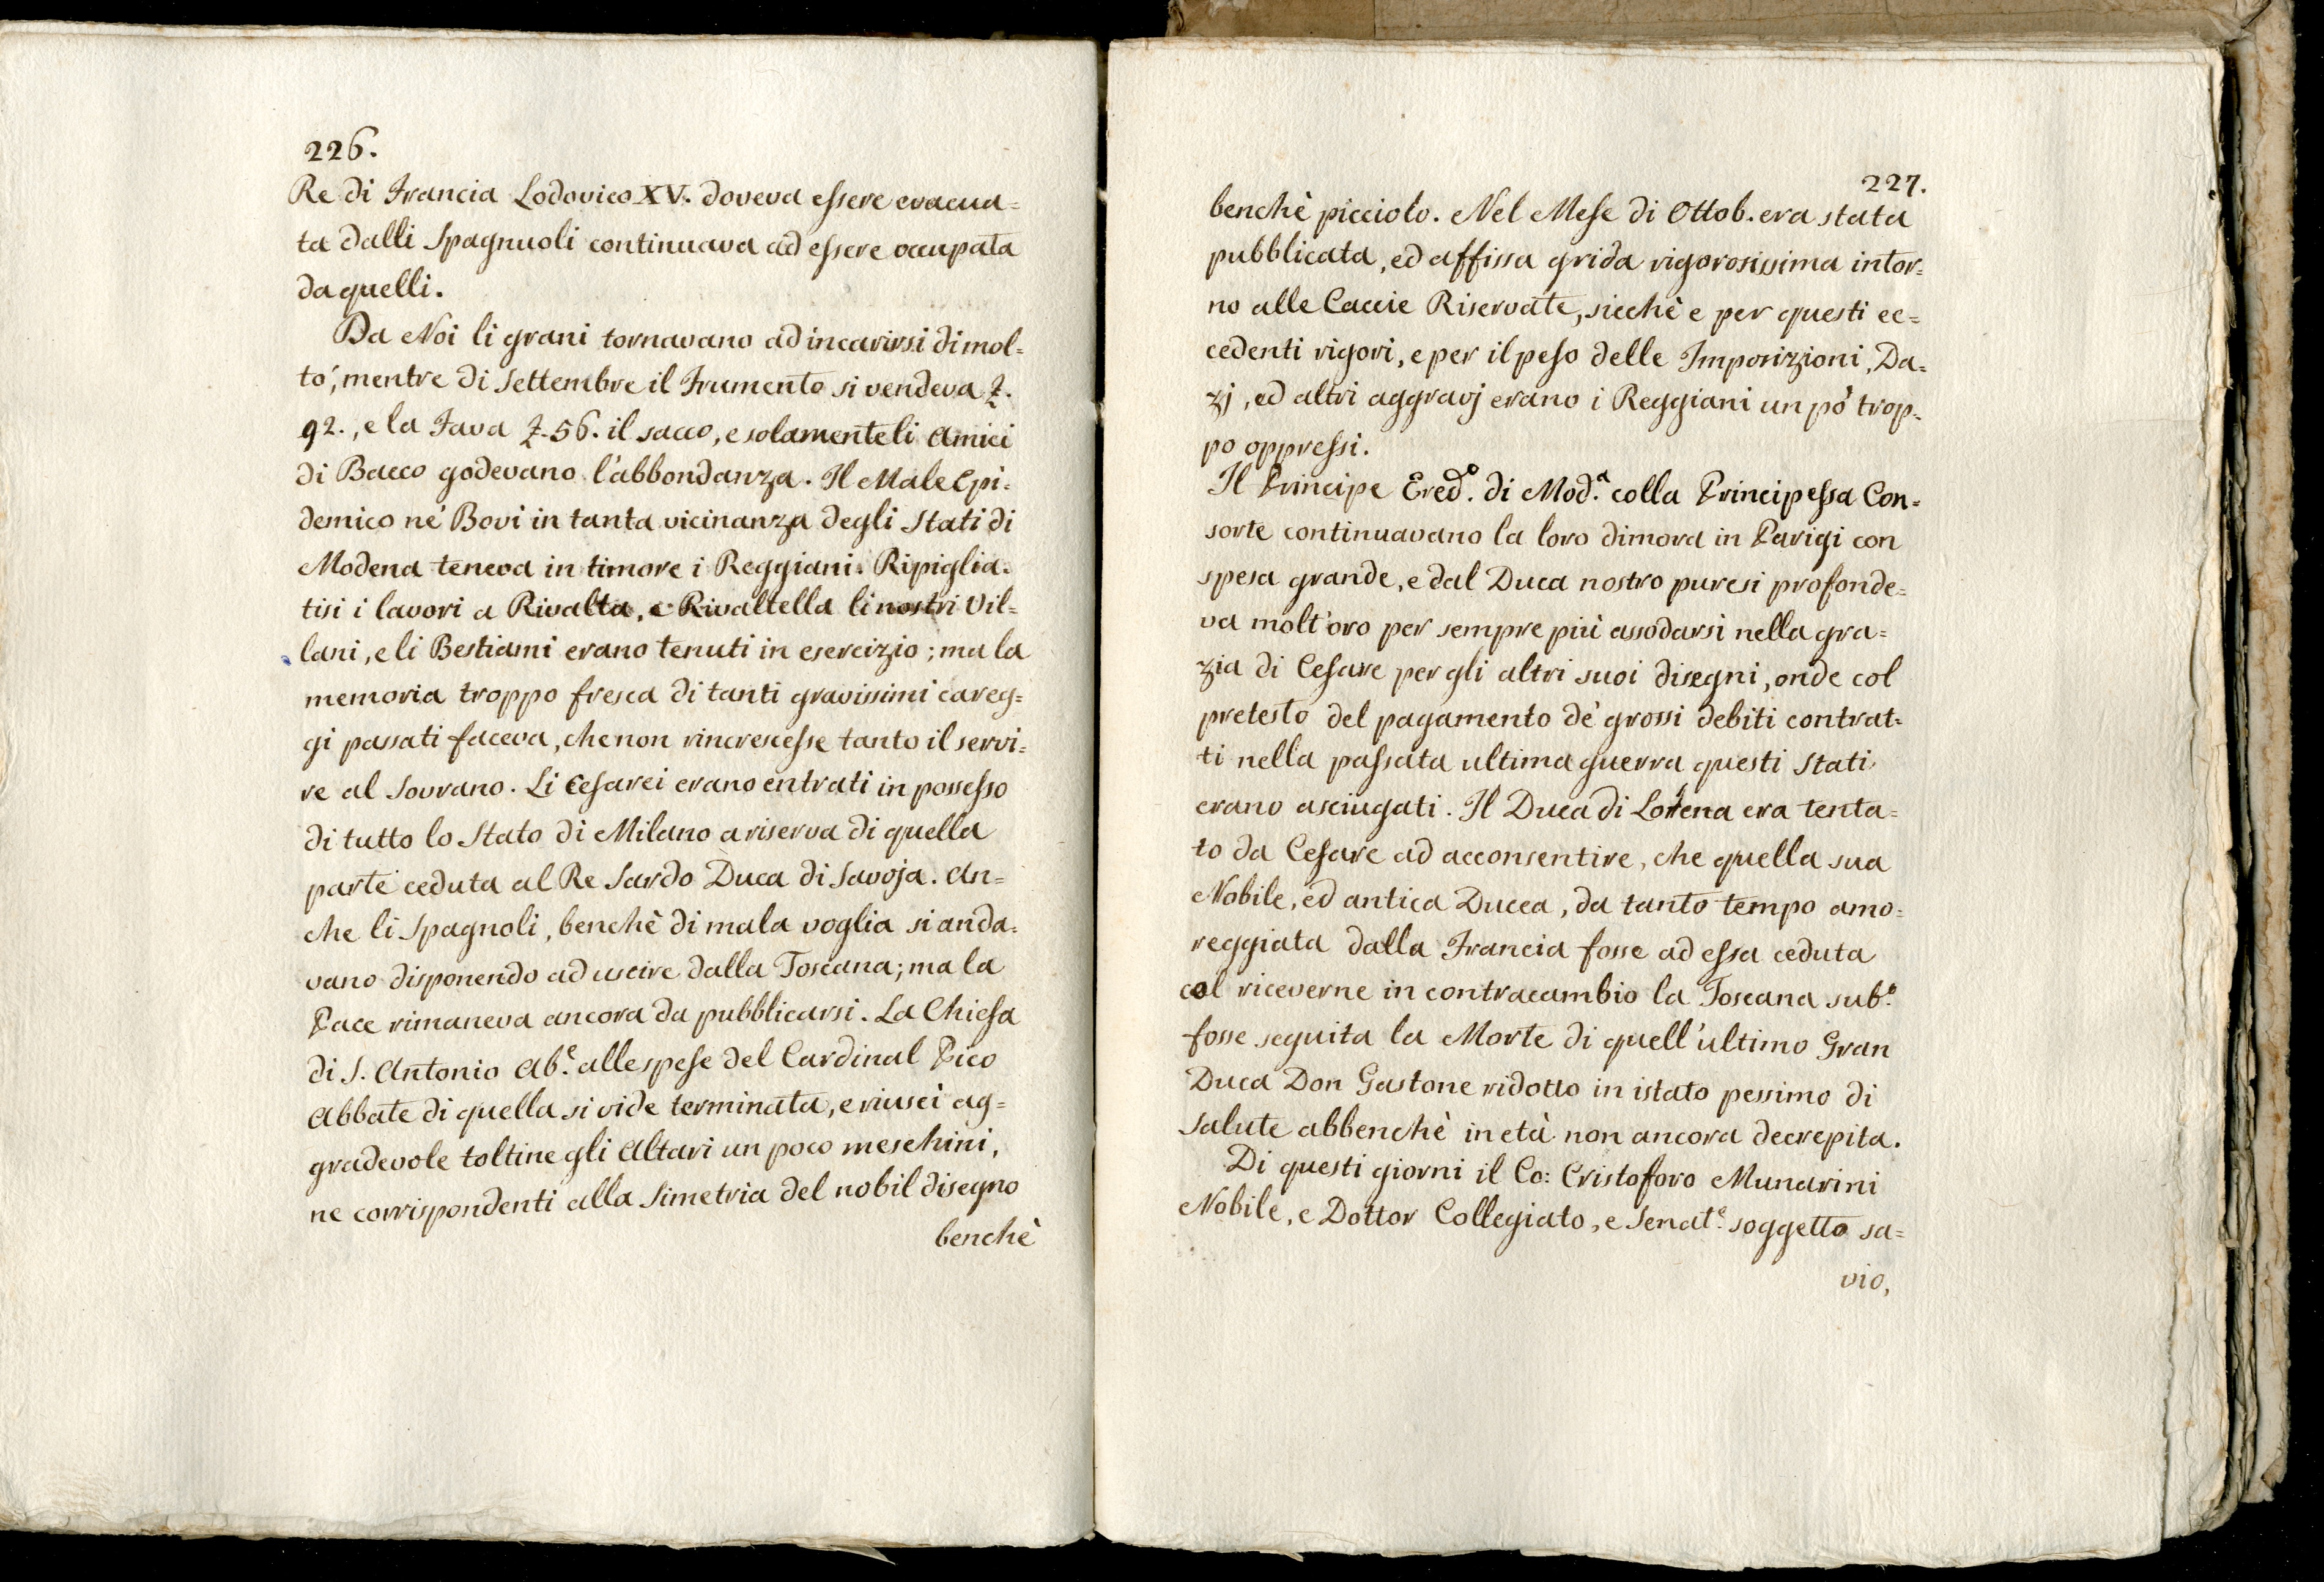 226.
Re di Francia Lodovico XV. doveva essere evacua=
ta dalli Spagnuoli continuava ad essere occupata
da quelli.
Da Noi li grani tornavano ad incarirsi di mol=
to, mentre di Settembre il Frumento si vendeva £.
92., e la Fava £. 56. il sacco, e solamente li Amici
di Bacco godevano l'abbondanza. Il Male Epi=
demico ne' Bovi in tanta vicinanza degli Stati di
Modena teneva in timore i Reggiani. Ripiglia=
tisi i lavori a Rivalta, e Rivaltella li nostri Vil=
lani, e li Bestiami erano tenuti in esercizio; ma la
memoria troppo fresca di tanti gravissimi careg=
gi passati faceva, che non rincrescesse tanto il servi=
re al Sovrano. Li Cesarei erano entrati in possesso
di tutto lo Stato di Milano a riserva di quella
parte ceduta al Re Sardo Duca di Savoja. An=
che li Spagnoli, benchè di mala voglia si anda=
vano disponendo ad uscire dalla Toscana; ma la
Pace rimaneva ancora da pubblicarsi. La Chiesa
di S. Antonio Ab.e alle spese del Cardinal Pico
Abbate di quella si vide terminata, e riuscì ag=
gradevole toltine gli Altari un poco meschini,
ne corrispondenti alla Simetria del nobil disegno
benchè
227.
benchè picciolo. Nel Mese di Ottob. era stata
pubblicata, ed affissa grida rigorosissima intor=
no alle Caccie Riservate, sicchè e per questi ec=
cedenti rigori, e per il peso delle Imposizioni, Da=
zj, ed altri aggravj erano i Reggiani un pò trop=
po oppressi.
Il Principe Ered.o di Mod.a colla Principessa Con=
sorte continuavano la loro dimora in Parigi con
spesa grande, e dal Duca nostro pure si profonde=
va molt'oro per sempre più assodarsi nella gra=
zia di Cesare per gli altri suoi disegni, onde col
pretesto del pagamento de' grossi debiti contrat=
ti nella passata ultima guerra questi Stati
erano asciugati. Il Duca di Lorena era tenta=
to da Cesare ad acconsentire, che quella sua
Nobile, ed antica Ducea, da tanto tempo amo=
reggiata dalla Francia fosse ad essa ceduta
col riceverne in contracambio la Toscana sub.o
fosse seguita la Morte di quell'ultimo Gran
Duca Don Gastone ridotto in istato pessimo di
Salute abbenchè in età non ancora decrepita.
Di questi giorni il Co: Cristoforo Munarini
Nobile, e Dottor Collegiato, e Senat.e soggetto sa=
vio,